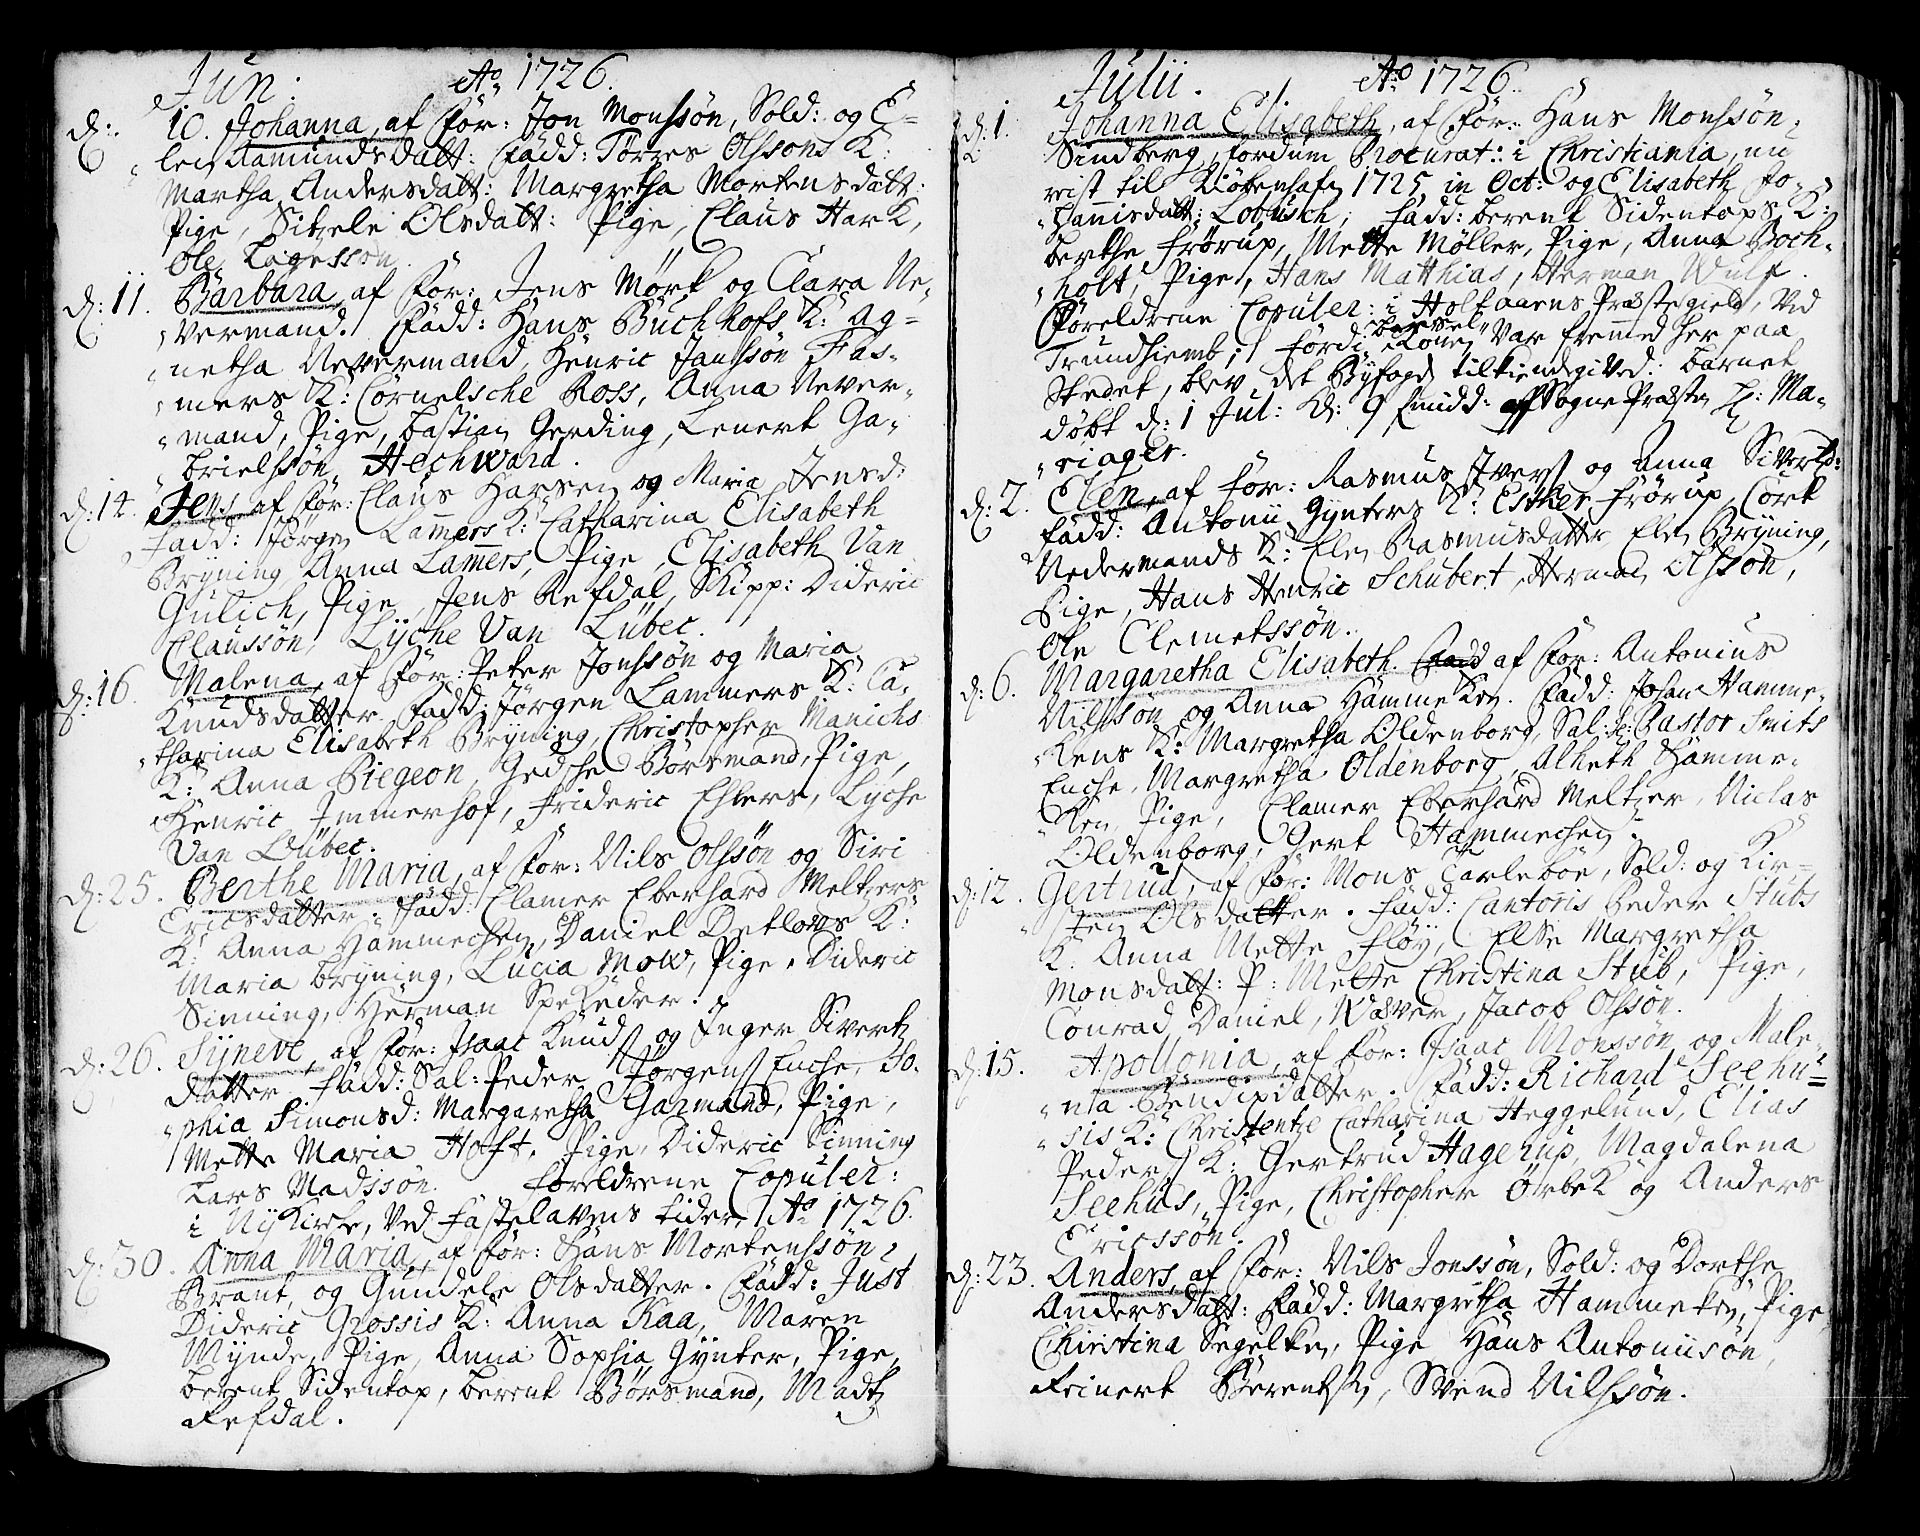 Jun: Ao 1726.
d: 10. Johanna, af For: Jon Monssøn, Sold: og E=
len Aamundsdatt: Fadd: Torres Olssøns K:
Martha Andersdatt: Margretha Mortensdatt:
Pige, Sitzele Olsdatt: Pige, Claus Hark,
Ole Lagessøn.
d: 11. Barbara, af For: Jens Mørk og Clara Ne,
vermand. Fadd: Hans Buchhofs K: Ag=
netha Nevermand, Henric Janssøn Fas,
mers K: Cornelsche Ross, Anna Never,
mand, Pige, Bastian Gerding, Lenert Ga,
brielssøn Hechward.
d: 14. Jens, af For: Claus Harsen og Maria Jensd:
Fadd: Jørgen Lamers K: Catharina Elisabeth
Bryning Anna Lamers, Pige, Elisabeth Van
Gulich, Pige, Jens Refdal, Skipp: Dideric
Claussøn, Lyche Van Lübec.
d: 16. Malena, af For: Peter Jonssøn og Maria
Knudsdatter. Fadd: Jørgen Lammers K: Ca,
tharina Elisabeth Bryning, Christopher Manichs
K: Anna Piegeon, Gedsche Børsmand, Pige,
Henric Immerhof, Frideric Ehlers, Lyche
Van Lübec.
d: 25. Berthe Maria, af For: Nils Olssøn og Siri
Ericsdatter. Fadd: Clamer Eberhard Meltzers
K: Anna Hammechen, Daniel Detlovs K:
Maria Bryning, Lucia Mow, Pige, Dideric
Sinning, Herman Spekeder.
d: 26. Syneve, af For: Isaac Knuds og Inger Siverts
datter. Fadd: Sal: Peder Jørgens Enche, So,
phia Simonsd: Margaretha Garmand, Pige,
Mette Maria Hofft, Pige, Dideric Sinning
Lars Madssøn. Foreldrene Copuler:
i Ny Kirche, Ved Fastelavens tider Ao 1726.
d: 30. Anna Maria, af For: Hans Mortenssøn,
Brant, og Gundele Olsdatter. Fadd: Just
Dideric Grossis K: Anna Kaa, Maren
Mynde, Pige, Anna Sophia Gynter, Pige,
Berent Sidentop, Berent Børsmand, Mads
Refdal.
Julii. Ao 1726.
d: 1. Johanna Elisabeth, af For: Hans Monssøn,
Sindberg, fordum Procurat: i Christiania, nu
reist til Kiøbenhafn 1725 in Oct: og Elisabeth Jo,
hannisdatt: Lobusch, Fadd: Berent Sidentops K:
Berthe Frørup, Mette Møller, Pige, Anna Boch,
holt, Pige, Hans Matthias, Herman Wulf.
Foreldrene Copuler: i Holtaaens Præstegield, Ved
Trundhiemb; fordi barsel Konen Var fremed her paa
Stedet, blev det Byfogd tilkiendegived: barnet
døbt d: 1 Jul: Kl: 9 fmidd: aff Sogne Præsten Hr: Ma,
riager.
d: 2. Elen, af For: Rasmus Ivers og Anna Sivertsd:
Fadd: Antonii Gynters K: Esther Frørup, Cort
Nedermands K: Elen Rasmusdatter, Elen Bryning,
Pige, Hans Henric Schubert, Herman Olssøn,
Ole Clemetssøn.
d: 6. Margaretha Elisabeth. af For: Antonius
Nilssøn og Anna Hammeken. Fadd: Johan Hamme,
kens K: Margretha Oldenborg, Sal: Hr: Pastor Smits
Enche, Margretha Oldenborg, Alheth Hamme,
ken, Pige, Clamer Eberhard Meltzer, Niclas
Oldenborg, Gert Hammechen.
d: 12. Gertrud, af For: Mons Carleboe, Sold: og Kir=
sten Olsdatter. Fadd: Cantoris Peder Stubs
K: Anna Mette Fløy, Else Margretha
Monsdatt: P: Mette Christina Stub, Pige,
Conrad Daniel, Wæver, Jacob Olssøn.
d: 15. Apollonia, af For: Isaac Monssøn og Male,
nia Bendixdatter. Fadd: Richard Seehu=
sis K: Christentze Catharina Heggelund, Elias
Peders K: Gertrud Hagerup, Magdalena
Seehus, Pige, Christopher Ørbek og Anders
Ericssøn.
d: 23. Anders, af For: Nils Jonssøn, Sold: og Dorthe
Andersdatt: Fadd: Margretha Hammeken, Pige
Christina Segelken, Pige Hans Antoniisøn,
Reinert Berents, Svend Nilssøn.